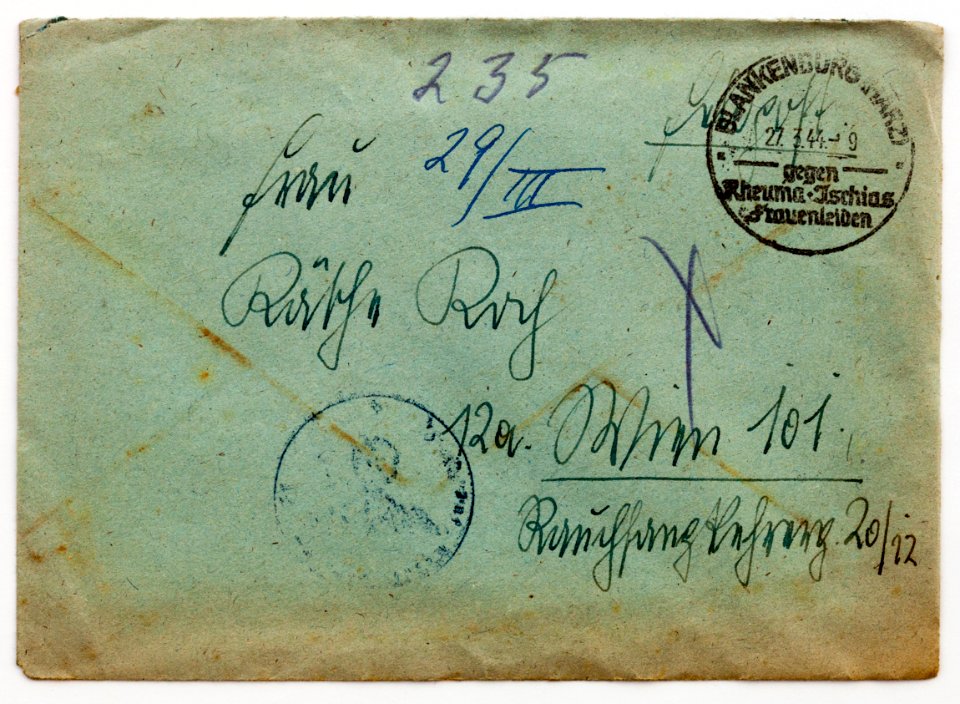 235
Feldpost
BLANKENBURG (HARZ)
27.3.44.-9
gegen
Rheuma · Ischias
Frauenleiden
29/III
Frau
Käthe Koch
12a. Wien 101.
Rauchfangkehrerg. 20/12